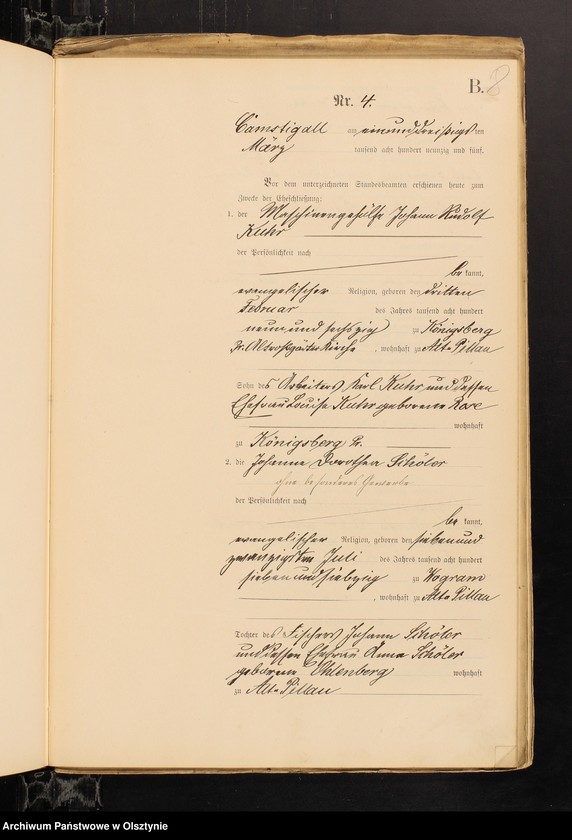 B. 8
Nr. 4.
Camstigall am einunddreißigsten
März tausend acht hundert neunzig und fünf.
Vor dem unterzeichneten Standesbeamten erschienen heute zum
Zwecke der Eheschließung:
1. der Maschinengehülfe Johann Rudolf
Kuhr
der Persönlichkeit nach
be kannt,
evangelischer Religion, geboren den dritten
Februar des Jahres tausend acht hundert
neunundsechszig zu Königsberg
Pr. Altroßgärter Kirche, wohnhaft zu Alt-Pillau
Sohn des Arbeiters Karl Kuhr und dessen
Ehefrau Louise Kuhr geborene Rose
wohnhaft
zu Königsberg Pr.
2. die Johanna Dorothea Schöler
ohne besonderes Gewerbe
der Persönlichkeit nach
be kannt,
evangelischer Religion, geboren den sieben und
zwanzigsten Juli des Jahres tausend acht hundert
siebenundsiebzig zu Wogram
, wohnhaft zu Alt-Pillau
Tochter des Fischers Johann Schöler
und dessen Ehefrau Anna Schöler
geborene Ehlenberg wohnhaft
zu Alt-Pillau
Archiwum Państwowe w Olsztynie